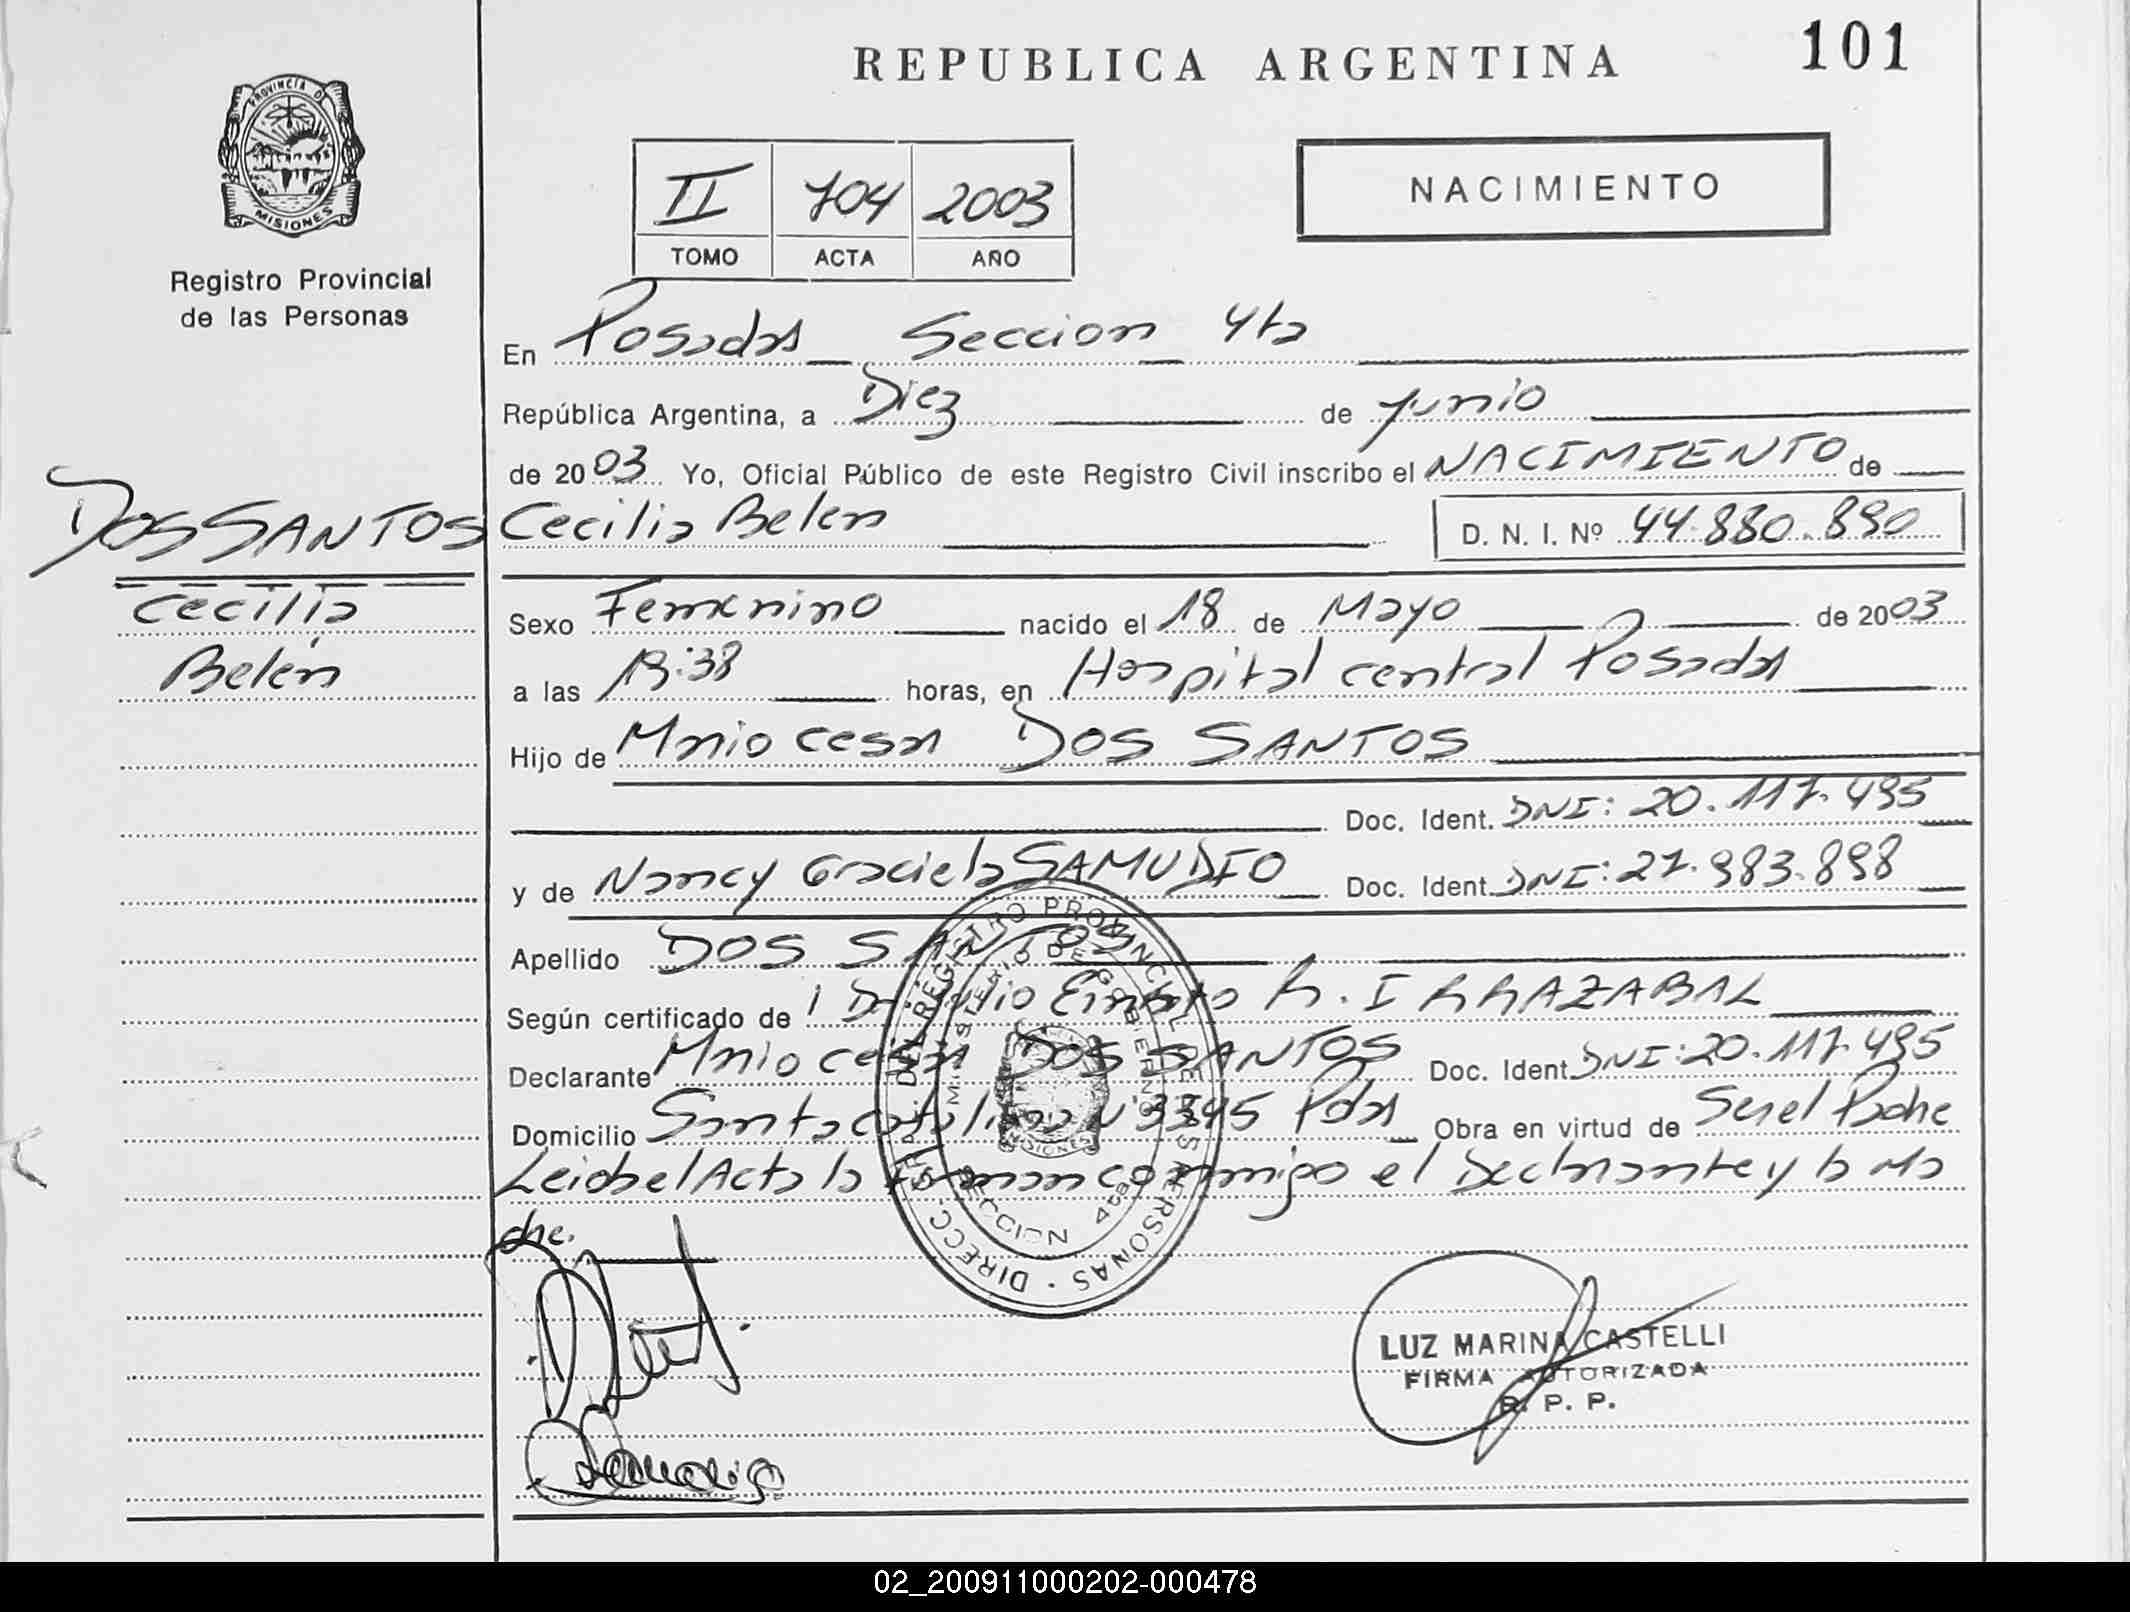 REPUBLICA ARGENTINA
101
PROVINCIA D
MISIONES
Registro Provincial
de las Personas
II 704 2003
TOMO ACTA AÑO
NACIMIENTO
En Posadas Seccion 4ta
República Argentina, a Diez de Junio
de 2003 Yo, Oficial Público de este Registro Civil inscribo el NACIMIENTO de
DOS SANTOS Cecilia Belen D. N. I. Nº 44.880.890
Cecilia
Belén
Sexo Femenino nacido el 18 de Mayo de 2003
a las 13:38 horas, en Hospital central Posadas
Hijo de Mario cesar DOS SANTOS
Doc. Ident. DNI: 20.117.495
y de Nancy Graciela SAMUDIO Doc. Ident. DNI: 27.983.898
Apellido DOS SANTOS
Según certificado de Julio R. IRRAZABAL
Declarante Mario cesar DOS SANTOS Doc. Ident DNI: 20.117.495
Domicilio Santa catalina Nº 3395 Pdas Obra en virtud de Ser el Padre
Leida el Acta la firman conmigo el Declarante y la Ma
dre.
DIRECC. GRAL. DEL REGISTRO PROVINCIAL DE LAS PERSONAS
MINISTERIO DE GOBIERNO
SECCION 4ta
LUZ MARINA CASTELLI
FIRMA AUTORIZADA
R. P. P.
02_200911000202-000478